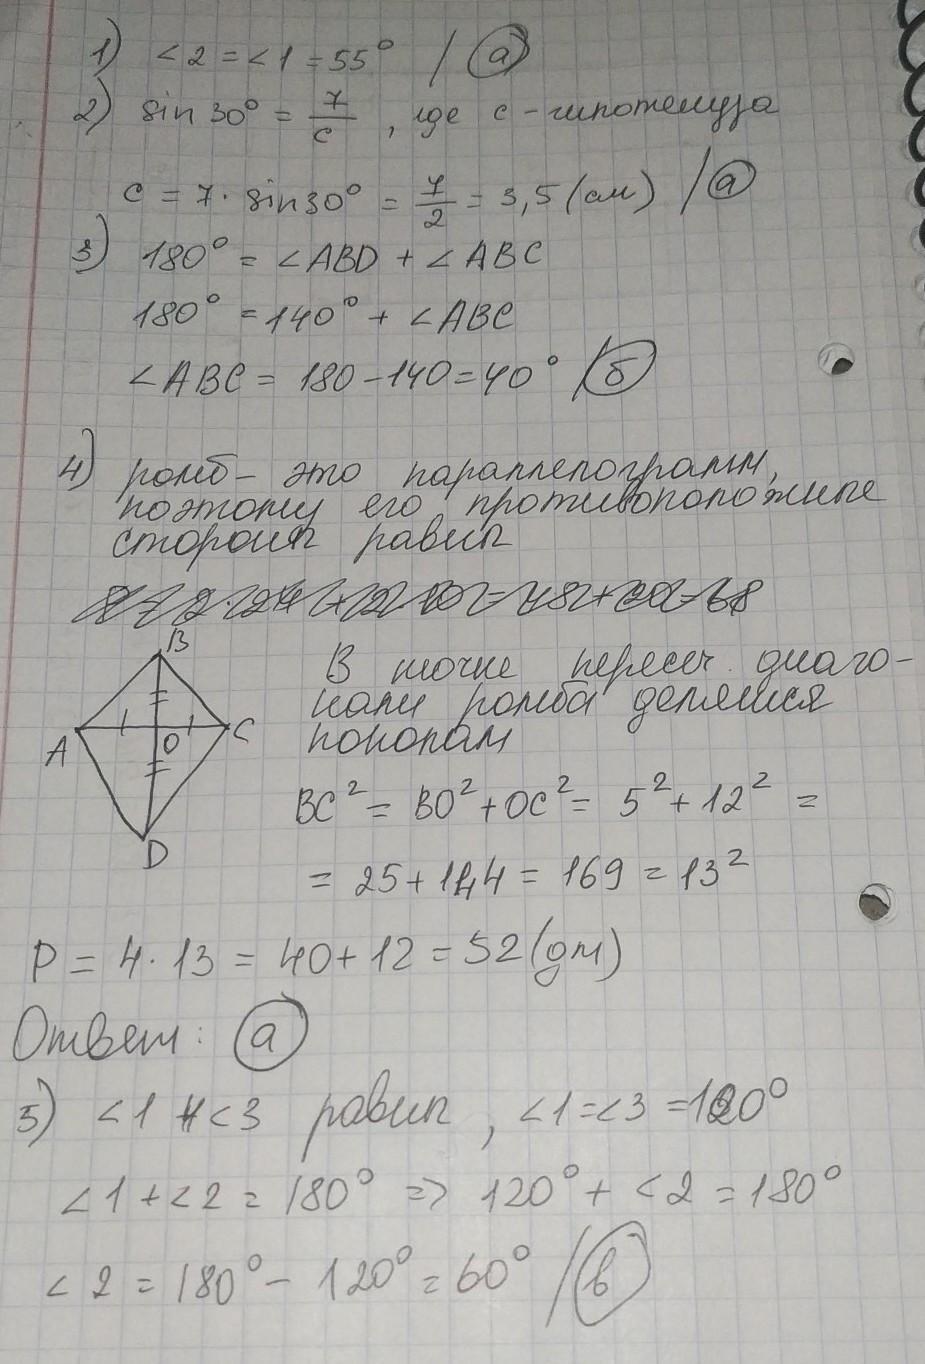 1) ∠2 = ∠1 = 55° / а
2) sin 30° = 7/c , где c - гипотенуза
c = 7 · sin30° = 7/2 = 3,5 (см) / а
3) 180° = ∠ABD + ∠ABC
180° = 140° + ∠ABC
∠ABC = 180 - 140 = 40° / б
4) ромб - это параллелограмм,
поэтому его противоположные
стороны равны
B
A
O
C
D
В точке пересеч. диаго-
нали ромба делятся
пополам
BC² = BO² + OC² = 5² + 12² =
= 25 + 144 = 169 = 13²
P = 4 · 13 = 40 + 12 = 52 (дм)
Ответ: а
5) ∠1 и ∠3 равны, ∠1 = ∠3 = 120°
∠1 + ∠2 = 180° => 120° + ∠2 = 180°
∠2 = 180° - 120° = 60° / в